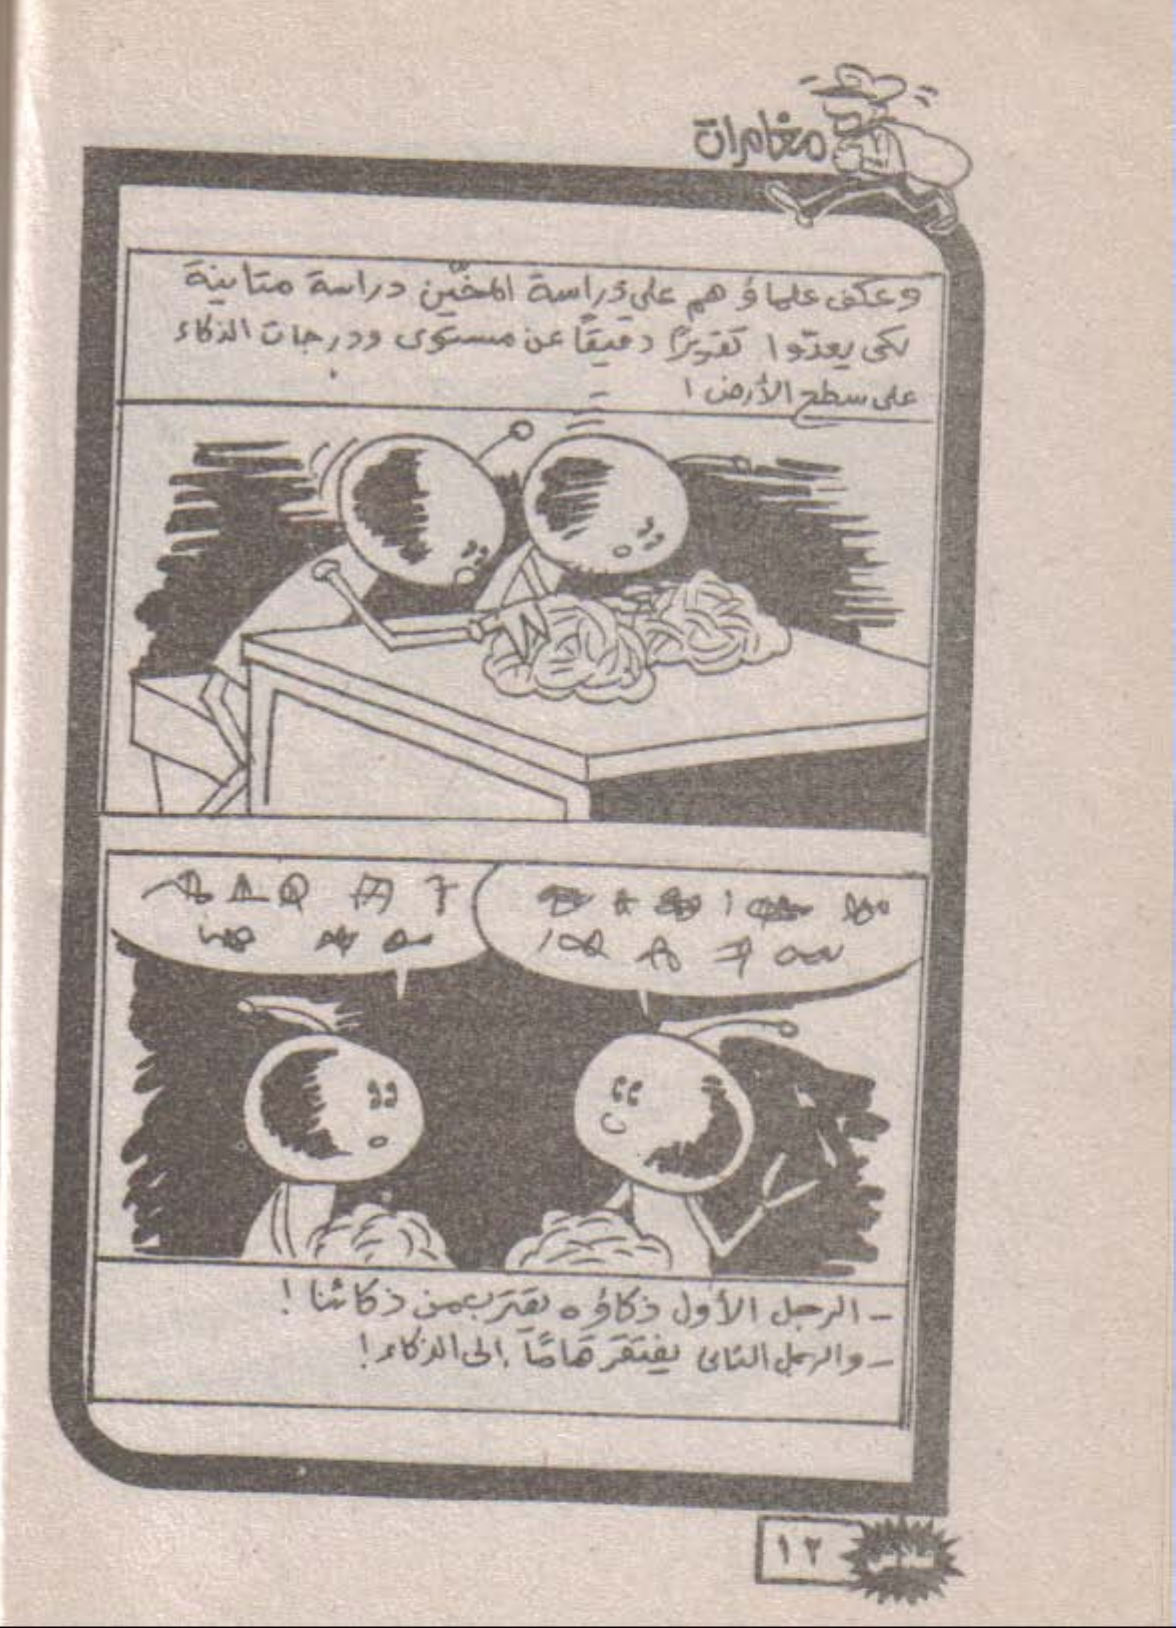 مغامرات
وعكف علماؤهم على دراسة المخّين دراسة متأنية
لكي يعدّوا تقريرًا دقيقًا عن مستوى ودرجات الذكاء
على سطح الأرض !
- الرجل الأول ذكاؤه يقترب من ذكائنا !
- والرجل الثانى يفتقر تمامًا إلى الذكاء !
١٢